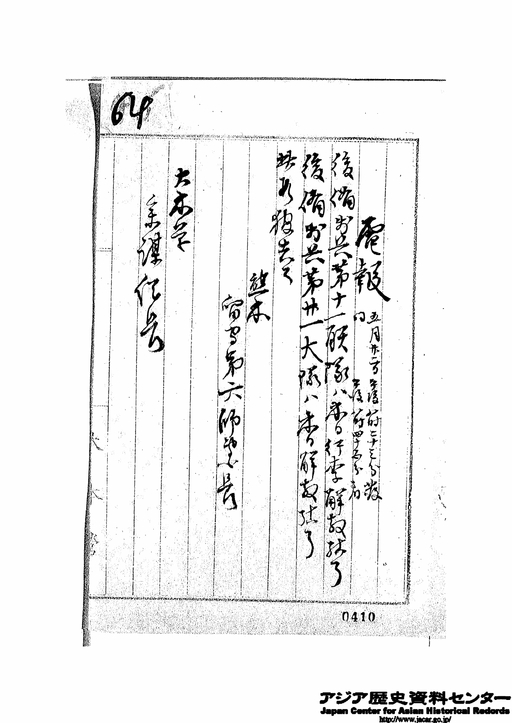 64
電報
五月廿二日午後 時二十三分発
同 午後 時四十五分着
後備歩兵第十一聯隊ハ本日行李解散結了
後備歩兵第廿一大隊ハ本日解散結了
此段報告ス
熊本
留守第六師団長
大本営
参謀次長
大本營
0410
アジア歴史資料センター
Japan Center for Asian Historical Records
http://www.jacar.go.jp/